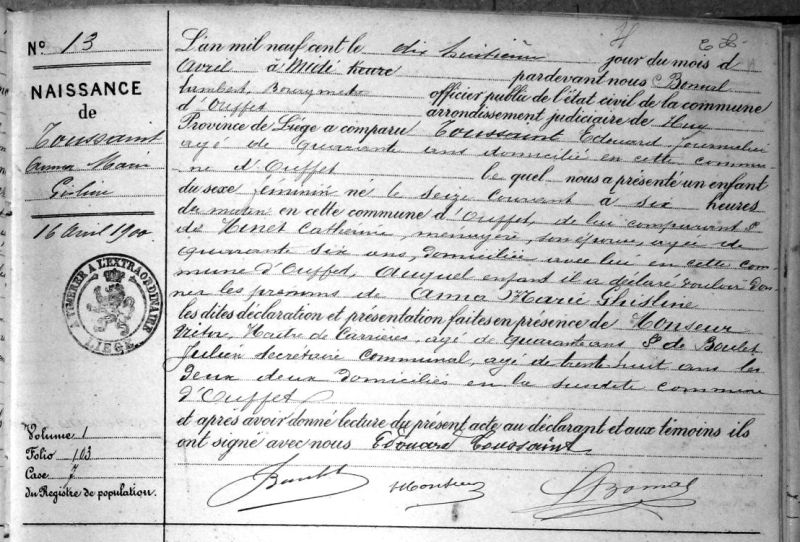 N° 13
NAISSANCE
de
Toussaint
Anna Marie
Gisline
16 Avril 1900
A TIMBRER A L'EXTRAORDINAIRE
LIEGE
Volume 1
Folio 103
Case 7
du Registre de population.
L'an mil neuf cent le dix huitième jour du mois d
Avril à Midi heure pardevant nous Bomal
Lambert, Bourgmestre officier public de l'état civil de la commune
d'Ouffet arrondissement judiciaire de Huy
Province de Liége a comparu Toussaint Edouard, journalier
agé de quarante ans domicilié en cette commu-
ne d'Ouffet le quel nous a présenté un enfant
du sexe féminin né le seize courant à six heures
du matin en cette commune d'Ouffet, de lui comparant &
de Hinet Catherine, ménagère, son épouse, agée de
quarante six ans, domiciliée avec lui en cette com-
mune d'Ouffet, auquel enfant il a déclaré vouloir don-
ner les prénoms de Anna Marie Ghisline
les dites déclaration et présentation faites en présence de Monseur
Victor, Maître de Carrières, agé de quarante ans & de Boulet
Julien secrétaire communal, agé de trente huit ans les
deux domiciliés en la susdite commune
d'Ouffet
et après avoir donné lecture du présent acte au déclarant et aux témoins ils
ont signé avec nous Edouard Toussaint
Boulet Monseur Bomal